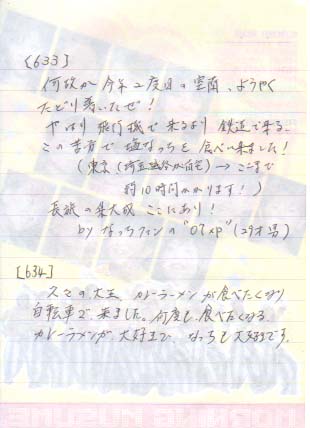 〈633〉
何故か今年2度目の室蘭、ようやく
たどり着いたぜ!
やはり飛行機で来るより鉄道で来る、
この方で 塩なっちを食べに来ました!
(東京(埼玉が自宅)→ここまで
約10時間かかります!)
長旅の集大成 ここにあり!
by なっちファンの "07xp" (29才 男)
[634]
久々の大王、カレーラーメンが食べたくなり
自転車で来ました。何度も食べたくなる
カレーラーメンが大好きで なっちも大好きです。
MORNING MUSUME